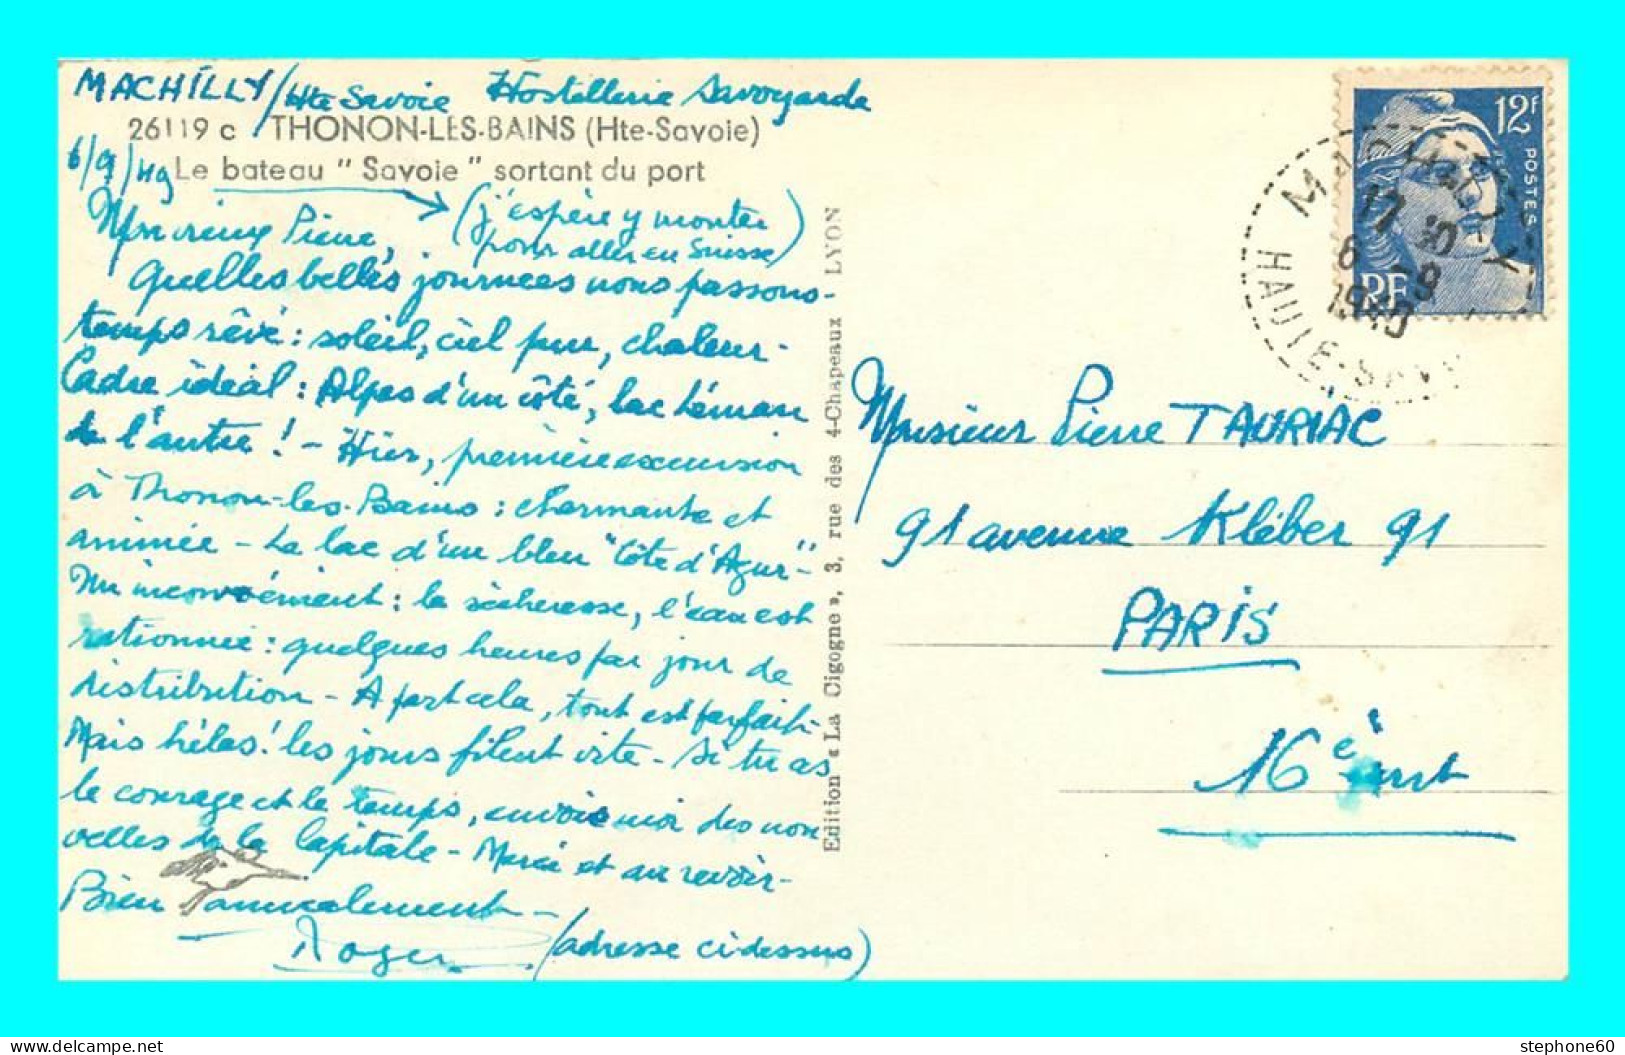 MACHILLY / Hte Savoie Hostellerie Savoyarde
26119 c THONON-LES-BAINS (Hte-Savoie)
6/9/49 Le bateau "Savoie" sortant du port
(j'espère y monter
pour aller en Suisse)
Mon vieux Pierre,
Quelles belles journées nous passons -
temps rêvé : soleil, ciel pur, chaleur -
Cadre idéal : Alpes d'un côté, lac Léman
de l'autre ! - Hier, première excursion
à Thonon-les-Bains : charmante et
animée - Le lac d'un bleu "Côte d'Azur" -
Un inconvénient : la sécheresse, l'eau est
rationnée : quelques heures par jour de
distribution - A part cela, tout est parfait -
Mais hélas ! les jours filent vite - Si tu as
le courage et le temps, envoie moi des nou
velles de la Capitale - Merci et au revoir -
Bien amicalement -
Roger (adresse ci-dessus)
Edition « La Cigogne », 3, rue des 4-Chapeaux LYON
12F
POSTES
RF
MACHILLY
17 30
6 -9
HAUTE-SAV
Monsieur Pierre TAURIAC
91 avenue Kléber 91
PARIS
16è arrt
delcampe.net
stephone60